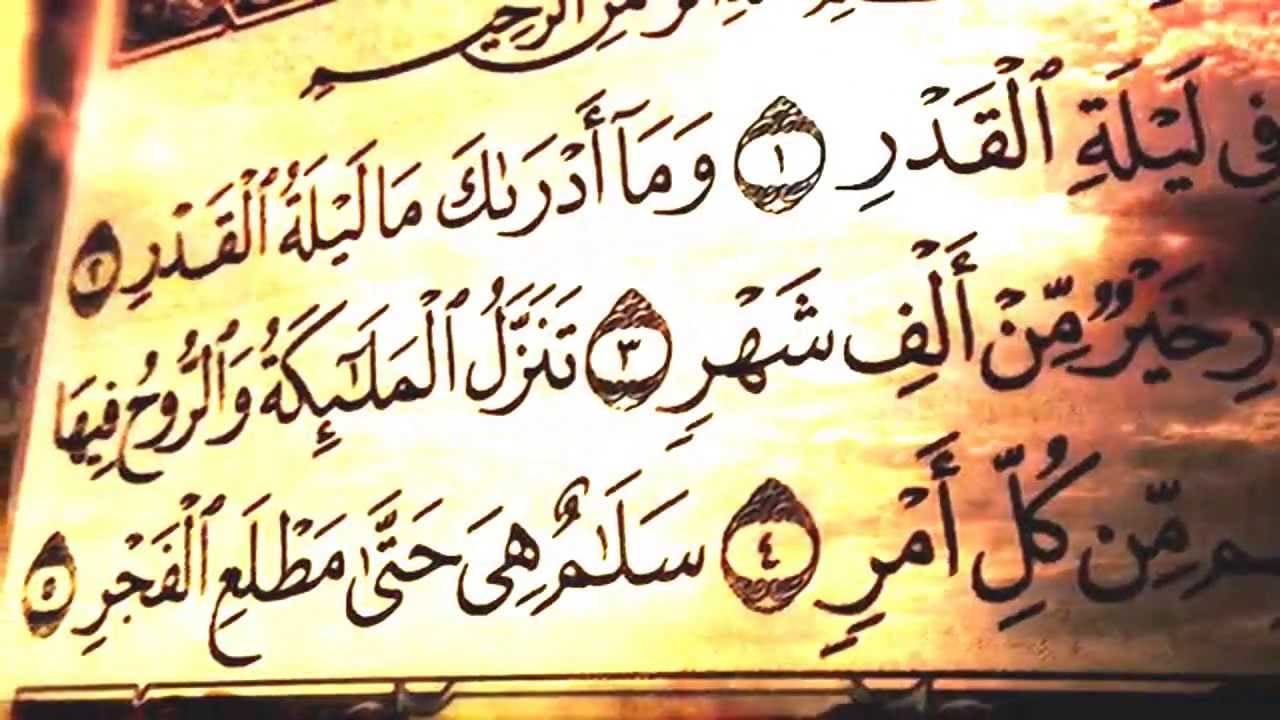 ٱلرَّحِيمِ
فِى لَيْلَةِ ٱلْقَدْرِ ١ وَمَآ أَدْرَىٰكَ مَا لَيْلَةُ ٱلْقَدْرِ ٢
رِ خَيْرٌ مِّنْ أَلْفِ شَهْرٍ ٣ تَنَزَّلُ ٱلْمَلَـٰٓئِكَةُ وَٱلرُّوحُ فِيهَا
مِّن كُلِّ أَمْرٍ ٤ سَلَـٰمٌ هِىَ حَتَّىٰ مَطْلَعِ ٱلْفَجْرِ ٥